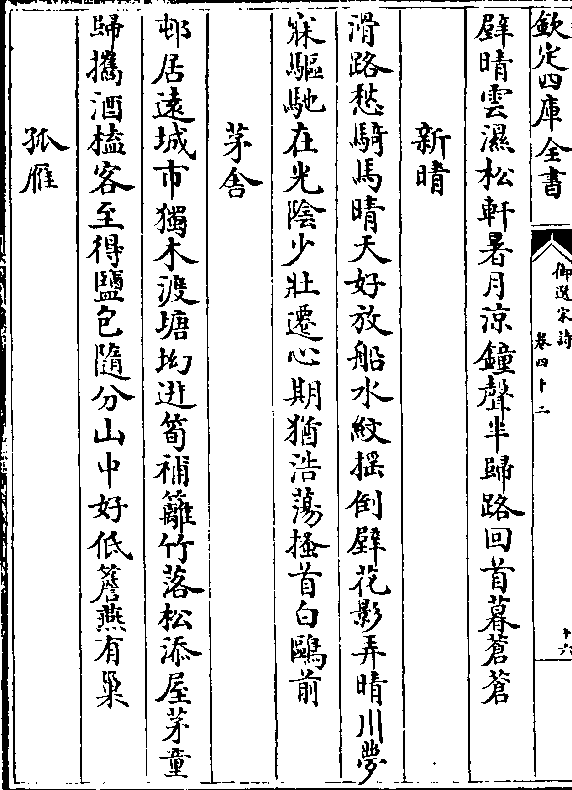 欽定四庫全書
御選宋詩
卷四十二
十六
壁晴雲濕松軒暑月涼鐘聲半歸路回首暮蒼蒼
新晴
滑路愁騎馬晴天好放船水紋揺倒壁花影弄晴川夢
寐驅馳在光陰少壯遷心期猶浩蕩搔首白鷗前
茅舍
邨居逺城市獨木渡塘坳迸筍補籬竹落松添屋茅童
歸攜酒榼客至得鹽包隨分山中好低簷燕有巢
孤雁